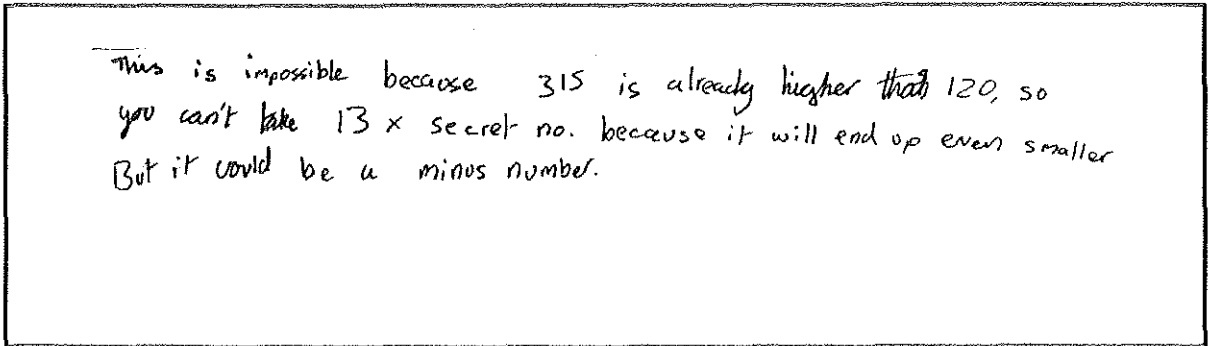 This is impossible because 315 is already higher than 120, so
you can't take 13 x secret no. because it will end up even smaller
But it could be a minus number.